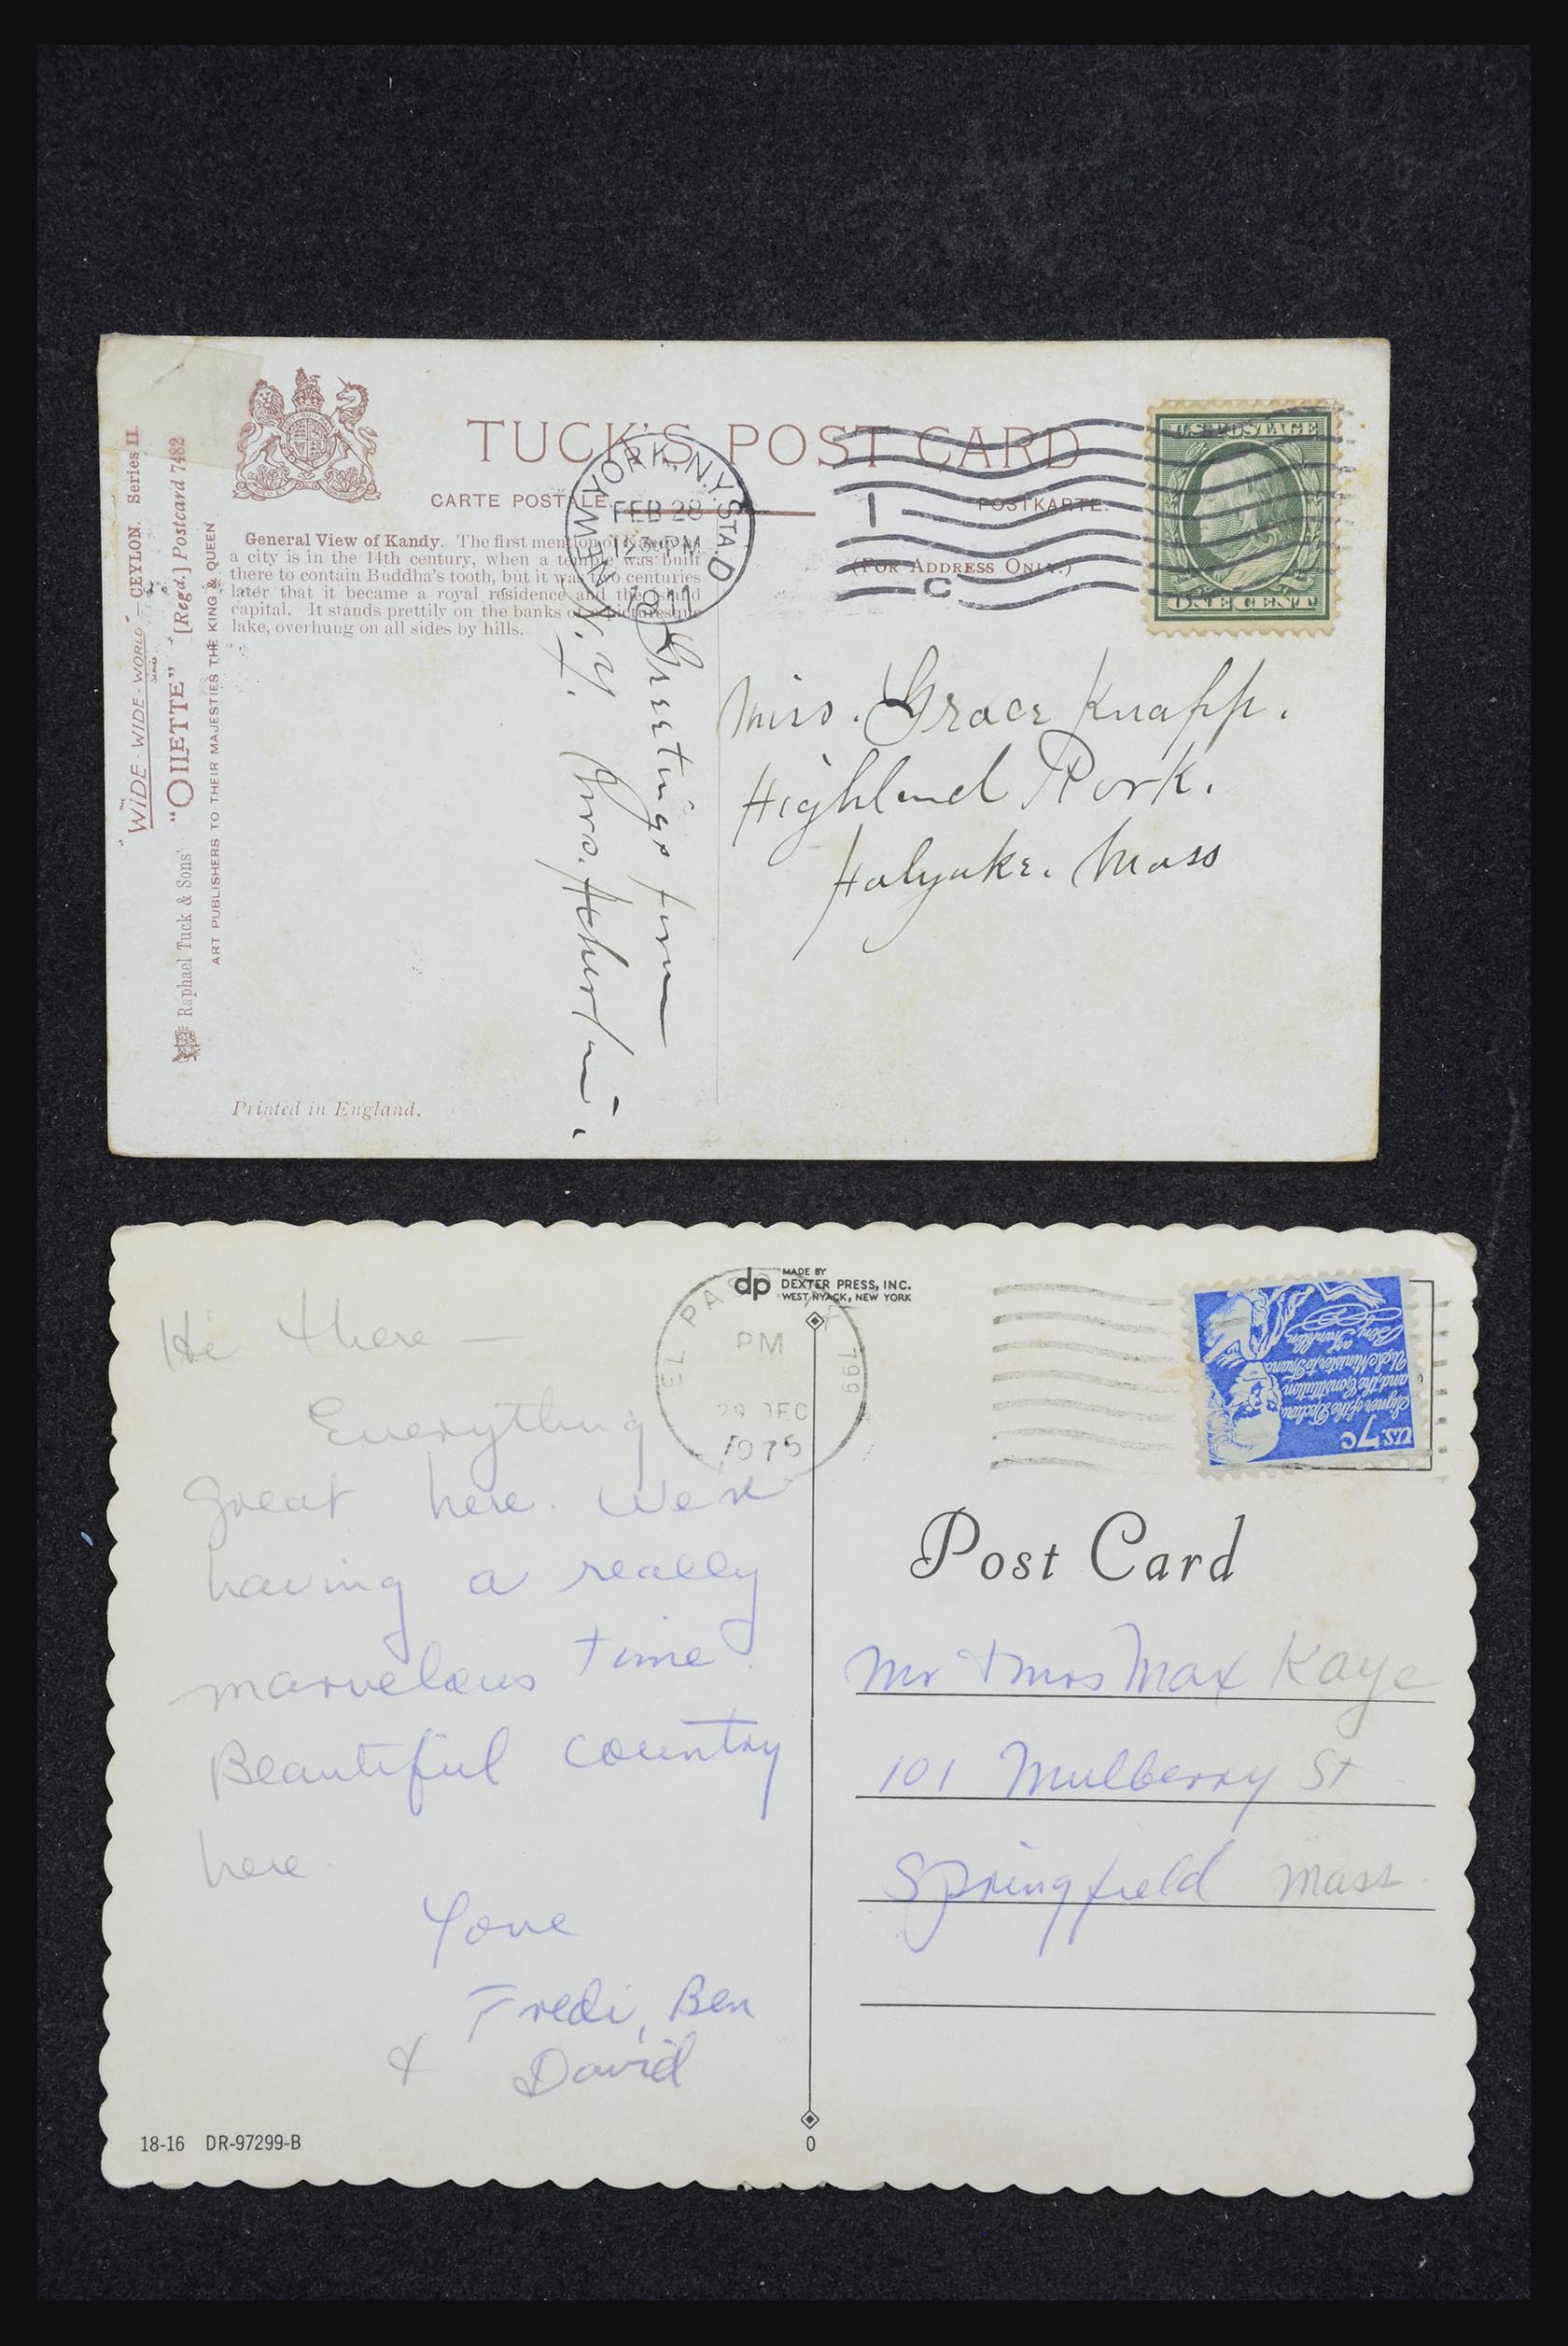 TUCK'S POST CARD
CARTE POSTALE
POSTKARTE.
(FOR ADDRESS ONLY.)
NEW YORK, N.Y. STA. D
FEB 28
12 30 PM
1911
1
C
U.S. POSTAGE
ONE CENT
General View of Kandy. The first mention of as
a city is in the 14th century, when a temple was built
there to contain Buddha's tooth, but it was two centuries
later that it became a royal residence and the island
capital. It stands prettily on the banks of a picturesque
lake, overhung on all sides by hills.
"THE WIDE-WIDE-WORLD" SERIES CEYLON. Series II.
Raphael Tuck & Sons' "OILETTE" [Regd.] Postcard 7482
ART PUBLISHERS TO THEIR MAJESTIES THE KING & QUEEN
Printed in England.
Greetings from
N.Y. Mrs.
Miss. Grace Knapp.
Highland Park.
Holyoke. Mass
dp MADE BY
DEXTER PRESS, INC.
WEST NYACK, NEW YORK
EL PASO TX 799
PM
29 DEC
1975
U.S. 7c
Signer of the Declara
and the Constitution
U.S. Minister to France
Ben Franklin
Post Card
Hi there —
Everything
great here. We're
having a really
marvelous time.
Beautiful country
here.
Love
Fredi, Ben
& David
Mr & Mrs Max Kaye
101 Mulberry St.
Springfield Mass.
18-16 DR-97299-B
0